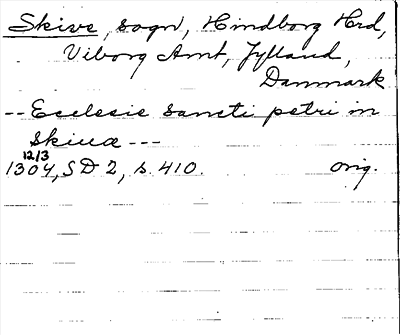 Skive, sogn, Hindborg Hrd,
Viborg Amt, Jylland,
Danmark
-- Ecclesie sancti petri in
Skiuæ ---
12/3
1304, SD 2, s. 410. orig.